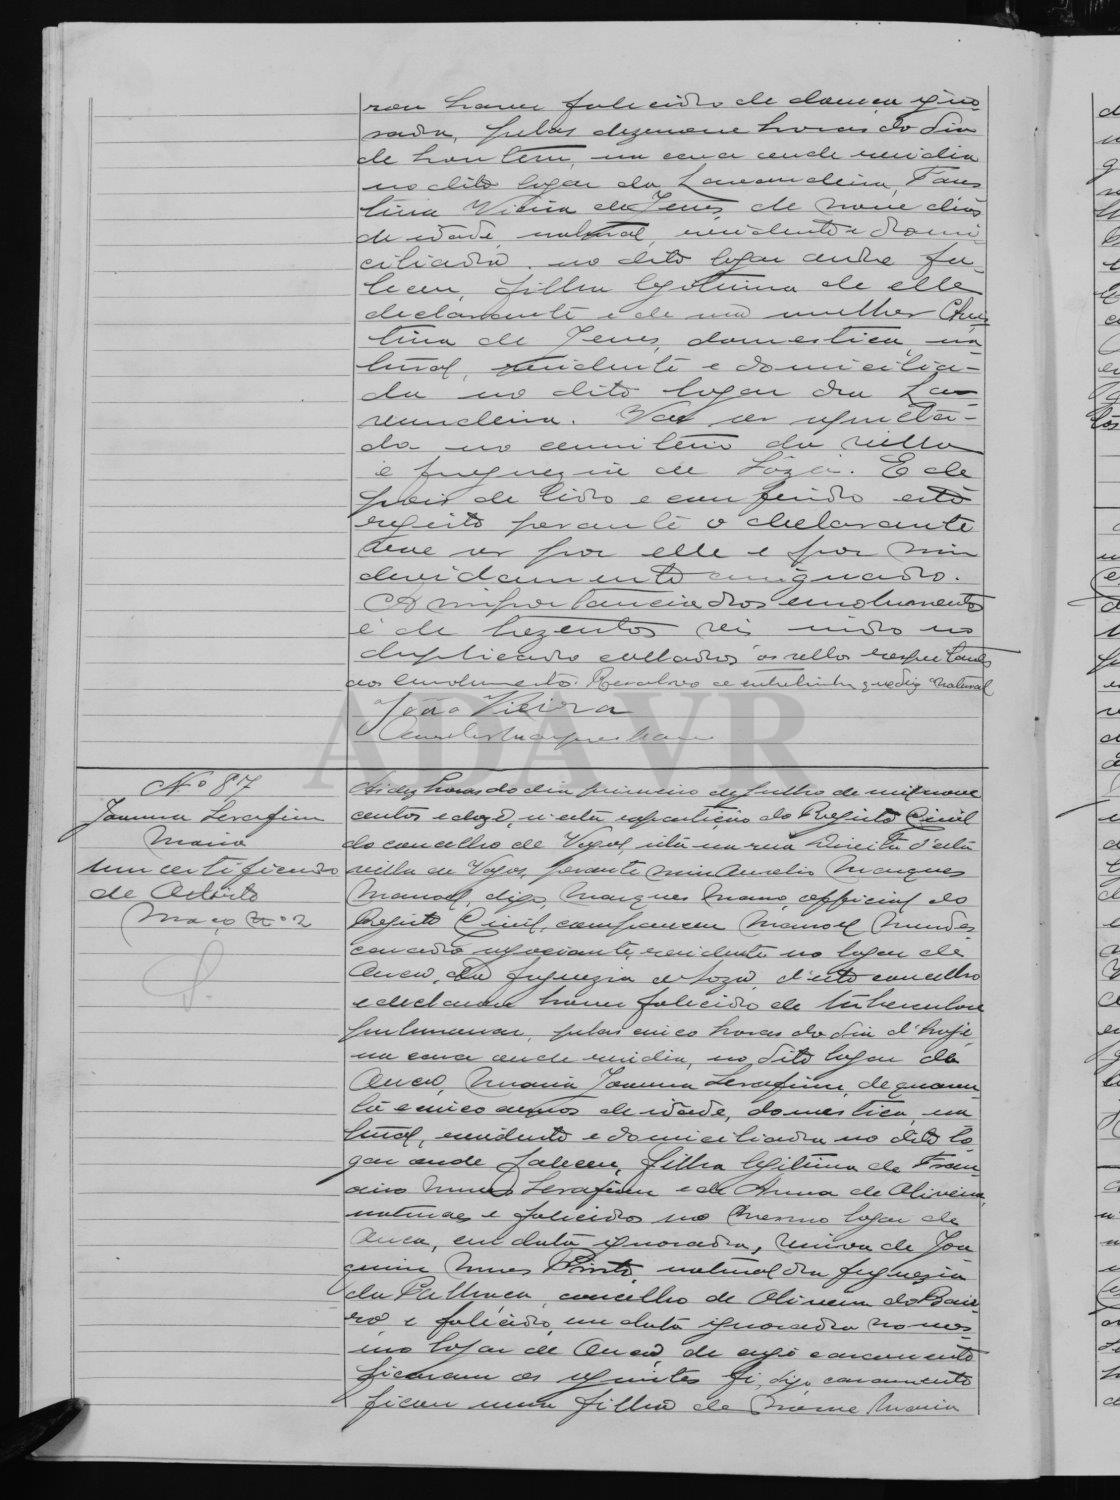 ron haver falecido de doença igno-
rada, pelas dezenove horas do dia
de hontem, na casa onde residia
no dito logar da Lavandeira, Faus
tina Vieira de Jesus, de nove dias
de idade, natural, residente e domi-
ciliada no dito logar onde fa-
leceu, filha legitima de elle
declarante e de sua mulher Chris
tina de Jesus, domestica, na-
tural, residente e domicilia-
da no dito logar da La-
vandeira. Vae ser sepulta-
da no cemiterio da villa
e freguezia de Sôza. E de
pois de lido e conferido este
registo perante o declarante
deve ser por elle e por mim
devidamente assignado.
A importancia dos emolumentos
é de trezentos reis sendo no
duplicado collados os sellos respeitantes
aos emolumentos. Resalvo a entrelinha que diz "natural
João Vieira
Aurelio Marques Mano
Nº 87
Joanna Serafim
Maria
um certificado
de Obito
Maço nº 2
ADAVR
Ás dez horas do dia primeiro de Julho de mil nove
centos e doze, n'esta repartição do Registo Civil
do concelho de Vagos, sita na rua Direita d'esta
villa de Vagos, perante mim Aurelio Marques
Manoel, digo, Marques Mano, official do
Registo Civil, compareceu Manoel Mendes
casado negociante, residente no logar de
Ouca, da freguezia de Soza, d'este concelho
e declarou haver falecido de tuberculose
pulmunar, pelas cinco horas do dia d'hoje,
na casa onde residia, no dito logar da
Ouca, Maria Joanna Serafim, de quaren
ta e cinco annos de idade, domestica, na
tural, residente e domiciliada no dito lo
gar onde faleceu, filha legitima de Fran-
cisco Nunes Serafim e de Anna de Oliveira,
naturaes e falecidos no mesmo logar de
Ouca, em data ignorada, viuva de Joa
quim Nunes Pinto, natural da freguezia
da Palhaça, concelho de Oliveira do Bair
ro e falecido, em data ignorada no mes-
mo logar de Ouca, de cujo casamento
ficaram os seguintes fi, digo, casamento
ficou uma filha de nome Maria